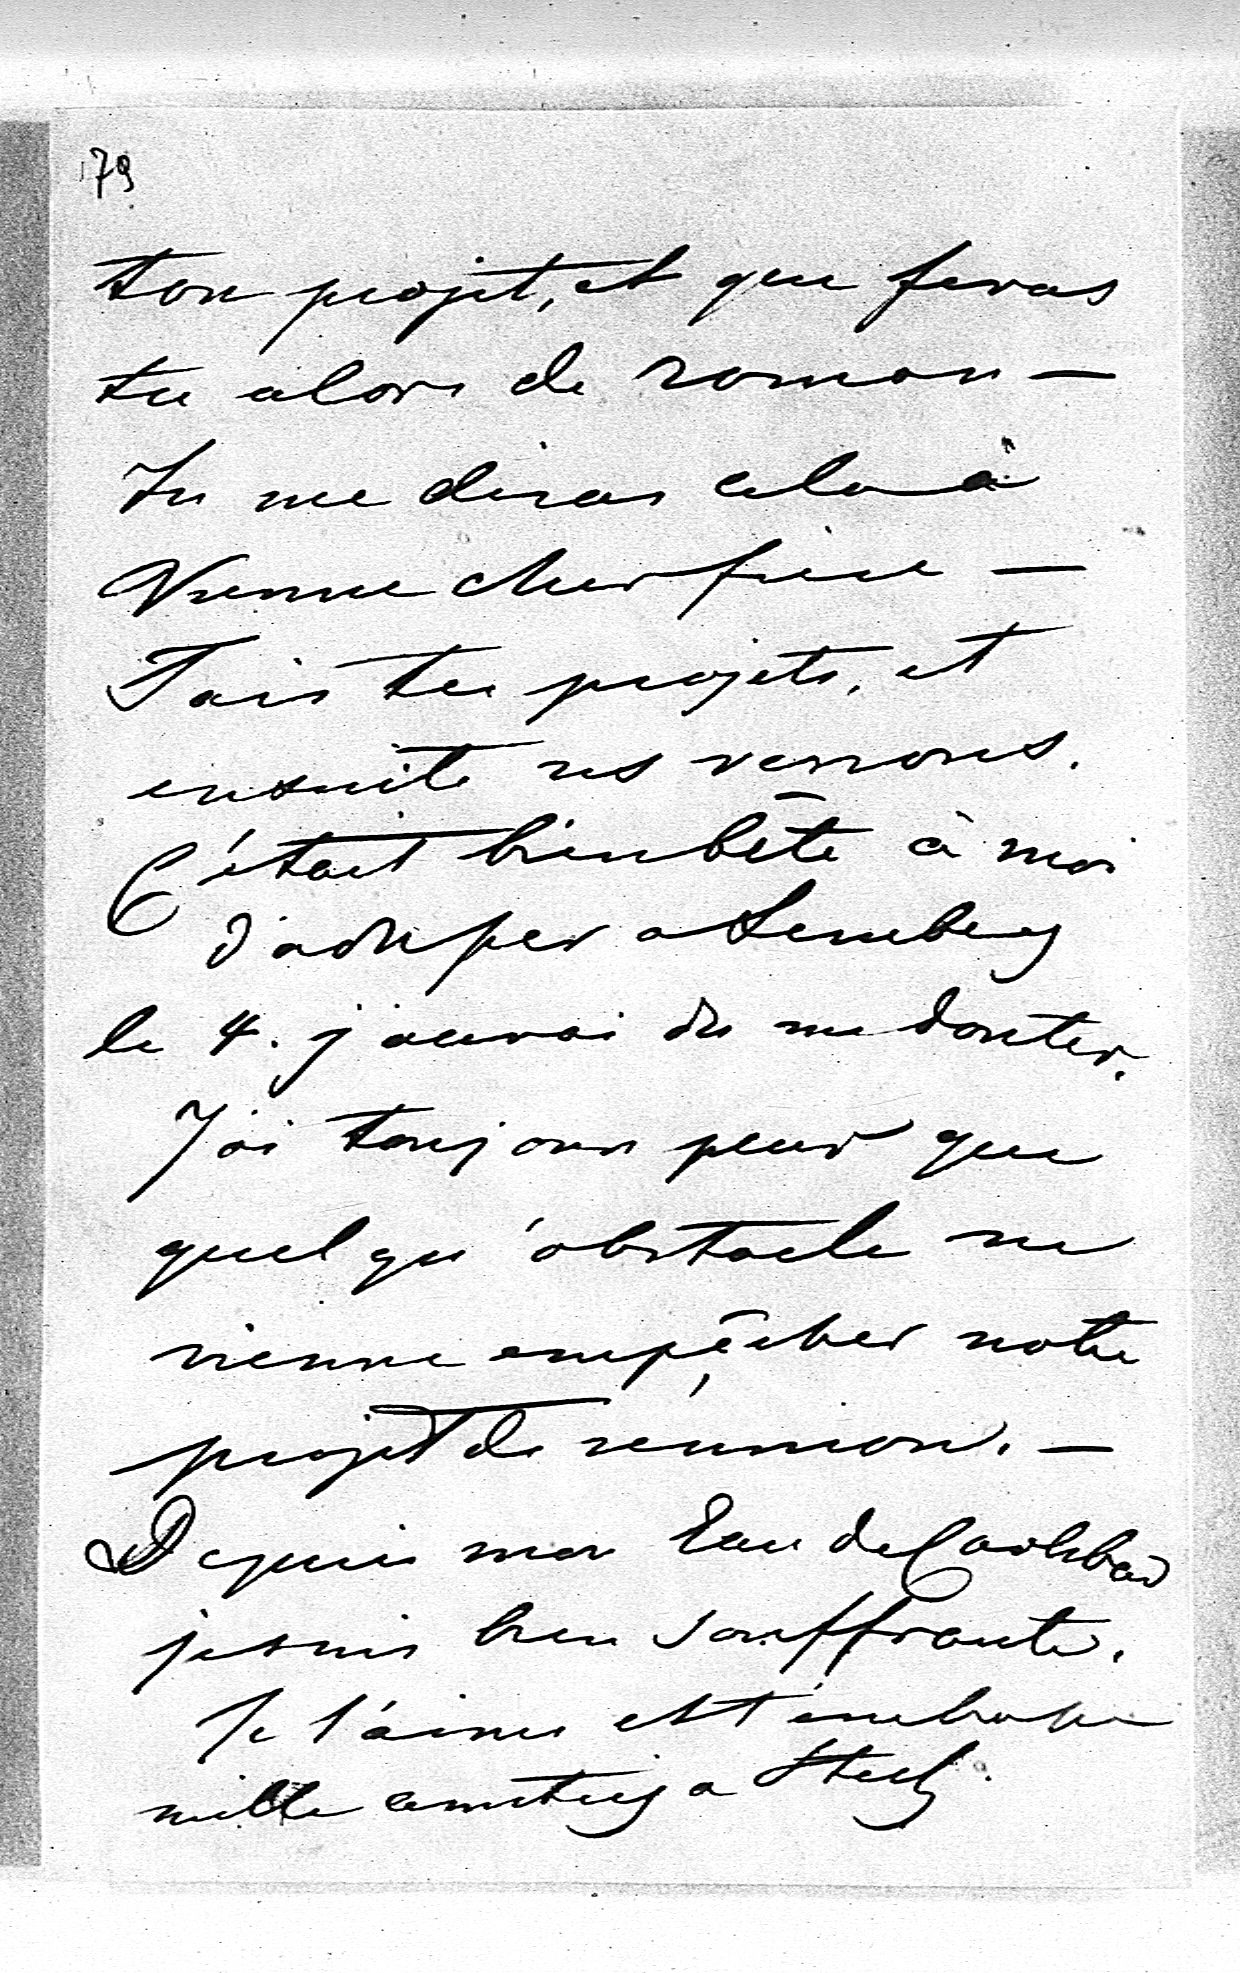 179
ton projet, et que feras
tu alors de roman —
Tu me diras cela à
Vienne cher frère —
Fais tes projets, et
ensuite ns verrons.
C'était bien bête à moi
d'adresser a Lemberg
le 4. j'aurai du me douter.
J'ai toujours peur que
quelqu'obstacle ne
vienne empêcher notre
projet de réunion. —
Depuis mon Eau de Carlsbad
je suis bien souffrante.
Je t'aime et t'embrasse
mille amitiés a